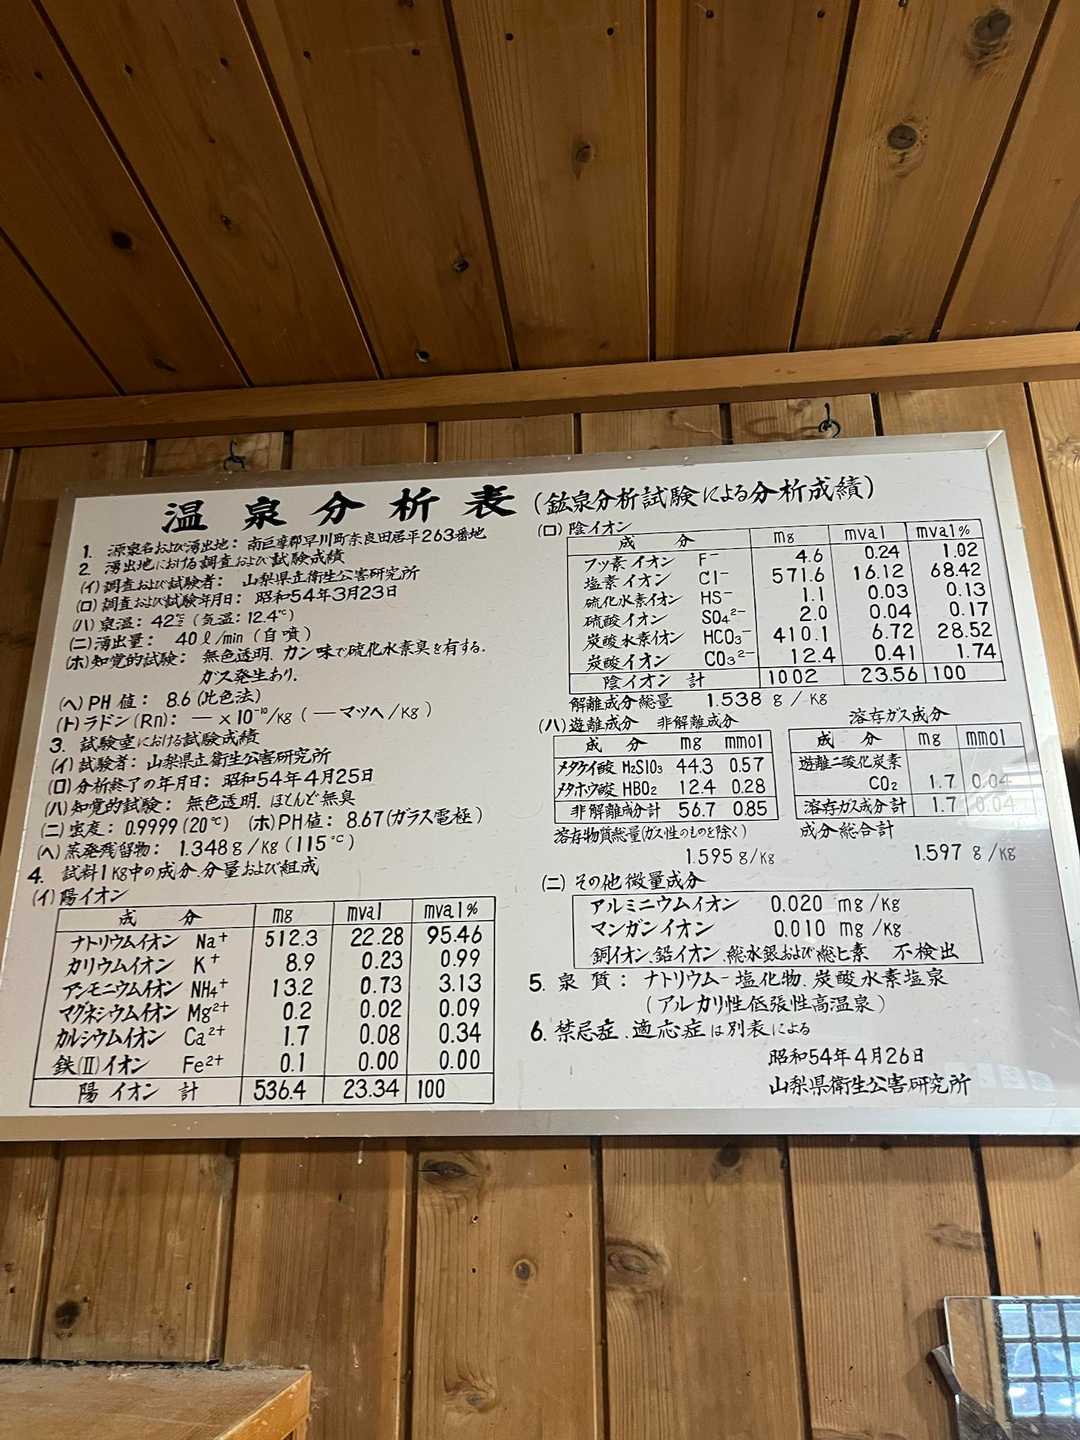 温泉分析表 (鉱泉分析試験による分析成績)
1. 源泉名および湧出地: 南巨摩郡早川町奈良田居平263番地
2. 湧出地における調査および試験成績
(イ)調査および試験者: 山梨県立衛生公害研究所
(ロ)調査および試験年月日: 昭和54年3月23日
(ハ)泉温: 42℃ (気温: 12.4℃)
(ニ)湧出量: 40ℓ/min (自噴)
(ホ)知覚的試験: 無色透明、カン味で硫化水素臭を有する.
ガス発生あり.
(ヘ)PH値: 8.6 (比色法)
(ト)ラドン(Rn): ー×10⁻¹⁰/kg (ーマッヘ/kg)
3. 試験室における試験成績
(イ)試験者: 山梨県立衛生公害研究所
(ロ)分析終了の年月日: 昭和54年4月25日
(ハ)知覚的試験: 無色透明. ほとんど無臭
(ニ)密度: 0.9999 (20℃) (ホ)PH値: 8.67(ガラス電極)
(ヘ)蒸発残留物: 1.348g/kg (115℃)
4. 試料1kg中の成分.分量および組成
(イ)陽イオン
成分 mg mval mval%
ナトリウムイオン Na⁺ 512.3 22.28 95.46
カリウムイオン K⁺ 8.9 0.23 0.99
アンモニウムイオン NH₄⁺ 13.2 0.73 3.13
マグネシウムイオン Mg²⁺ 0.2 0.02 0.09
カルシウムイオン Ca²⁺ 1.7 0.08 0.34
鉄(Ⅱ)イオン Fe²⁺ 0.1 0.00 0.00
陽イオン計 536.4 23.34 100
(ロ)陰イオン
成分 mg mval mval%
フッ素イオン F⁻ 4.6 0.24 1.02
塩素イオン Cl⁻ 571.6 16.12 68.42
硫化水素イオン HS⁻ 1.1 0.03 0.13
硫酸イオン SO₄²⁻ 2.0 0.04 0.17
炭酸水素イオン HCO₃⁻ 410.1 6.72 28.52
炭酸イオン CO₃²⁻ 12.4 0.41 1.74
陰イオン計 1002 23.56 100
解離成分総量 1.538 g/kg
(ハ)遊離成分 非解離成分
成分 mg mmol
メタケイ酸 H₂SiO₃ 44.3 0.57
メタホウ酸 HBO₂ 12.4 0.28
非解離成分計 56.7 0.85
溶存物質総量(ガス性のものを除く)
1.595 g/kg
溶存ガス成分
成分 mg mmol
遊離二酸化炭素
CO₂ 1.7 0.04
溶存ガス成分計 1.7 0.04
成分総合計
1.597 g/kg
(ニ)その他微量成分
アルミニウムイオン 0.020 mg/kg
マンガンイオン 0.010 mg/kg
銅イオン.鉛イオン.総水銀および総ヒ素 不検出
5. 泉質: ナトリウム-塩化物.炭酸水素塩泉
(アルカリ性低張性高温泉)
6. 禁忌症、適応症は別表による
昭和54年4月26日
山梨県衛生公害研究所